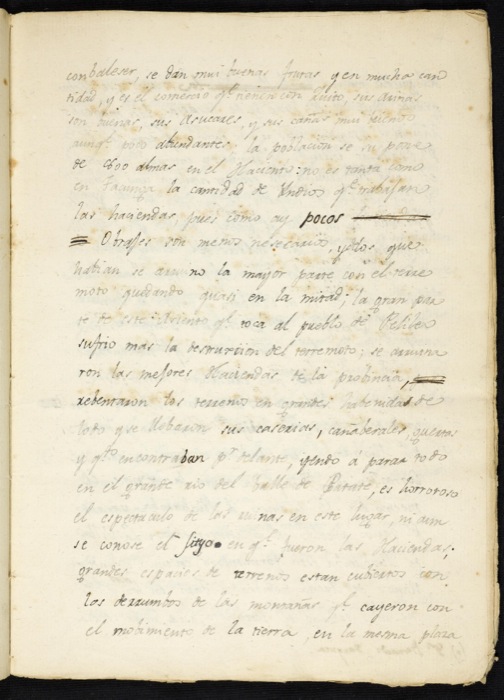 conbaleser, se dan mui buenas frutas, y en mucha can
tidad, y es el comercio q.e tienen con Quito, sus arinas
son buenas, sus Asucares, y sus cañas mui buenas
aunq.e poco abundantes la poblacion se su pone
de 800 almas en el Haciento: no es tanta como
en Tacunga la cantidad de Yndios q.e trabajan
las haciendas pues como ay pocos
Obrajes son menos nesecarios, y los que
habian se arruino la mayor parte con el terre
moto quedando quasi en la mitad; la gran par
te de este Aciento q.e toca al pueblo de Pelileo
sufrio mas la destruccion del terremoto; se arruina
ron las mejores Haciendas de la probincia,
rebentaron los terrenos en grandes habenidas de
lodo y se llebaron sus caserias, cañaberales, guertas
y q.to encontraban p.r delante, yendo á parar todo
en el grande rio del balle de Patate, es horroroso
el espectaculo de las ruinas en este lugar, ni aun
se conose el sityo en q.e fueron las Haciendas,
grandes espacies de terrenos estan cubiertos con
los derrumbos de las montañas q.e cayeron con
el mobimiento de la tierra, en la mesma plaza